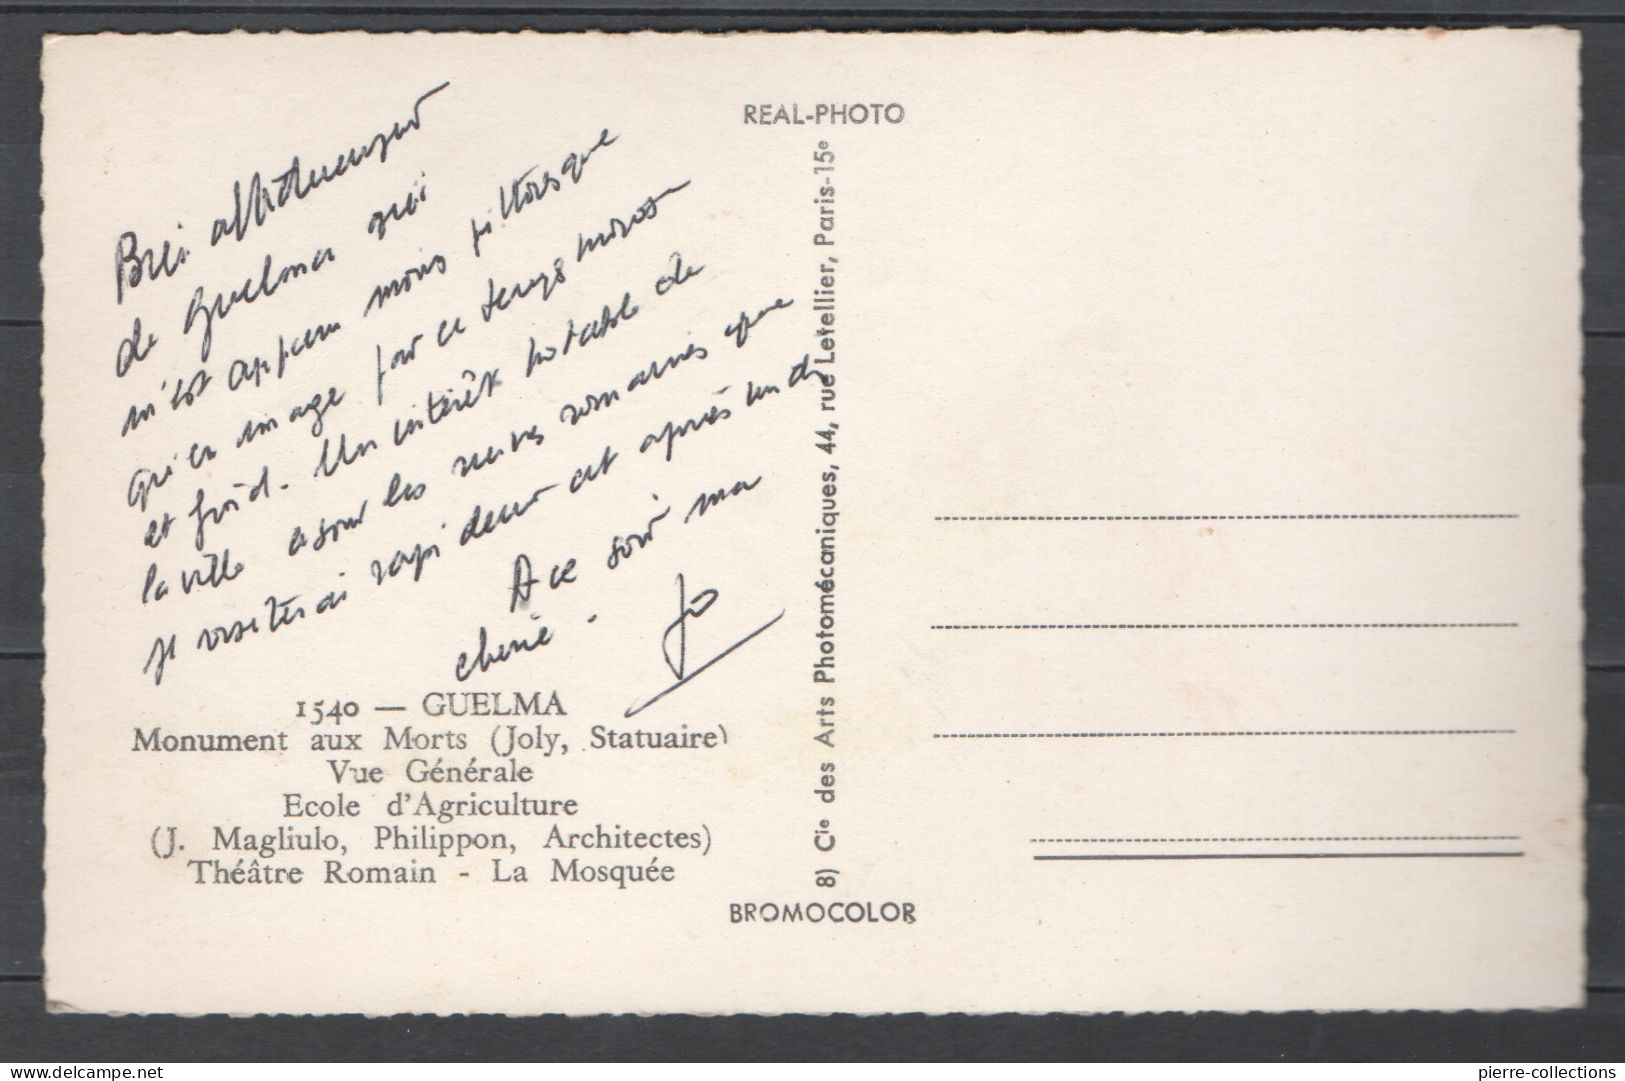 Bien affectueusement
de Guelma qui
m'est apparu moins pittoresque
qu'en image par ce temps morose
et froid. Un intérêt notable de
la ville a sour les ruines romaines que
je visiterai rapidement après midi
A ce soir ma
chérie.
Jo
1540 — GUELMA
Monument aux Morts (Joly, Statuaire)
Vue Générale
Ecole d'Agriculture
(J. Magliulo, Philippon, Architectes)
Théâtre Romain - La Mosquée
REAL-PHOTO
8) Cie des Arts Photomécaniques, 44, rue Letellier, Paris-15e
BROMOCOLOR
delcampe.net
pierre-collections